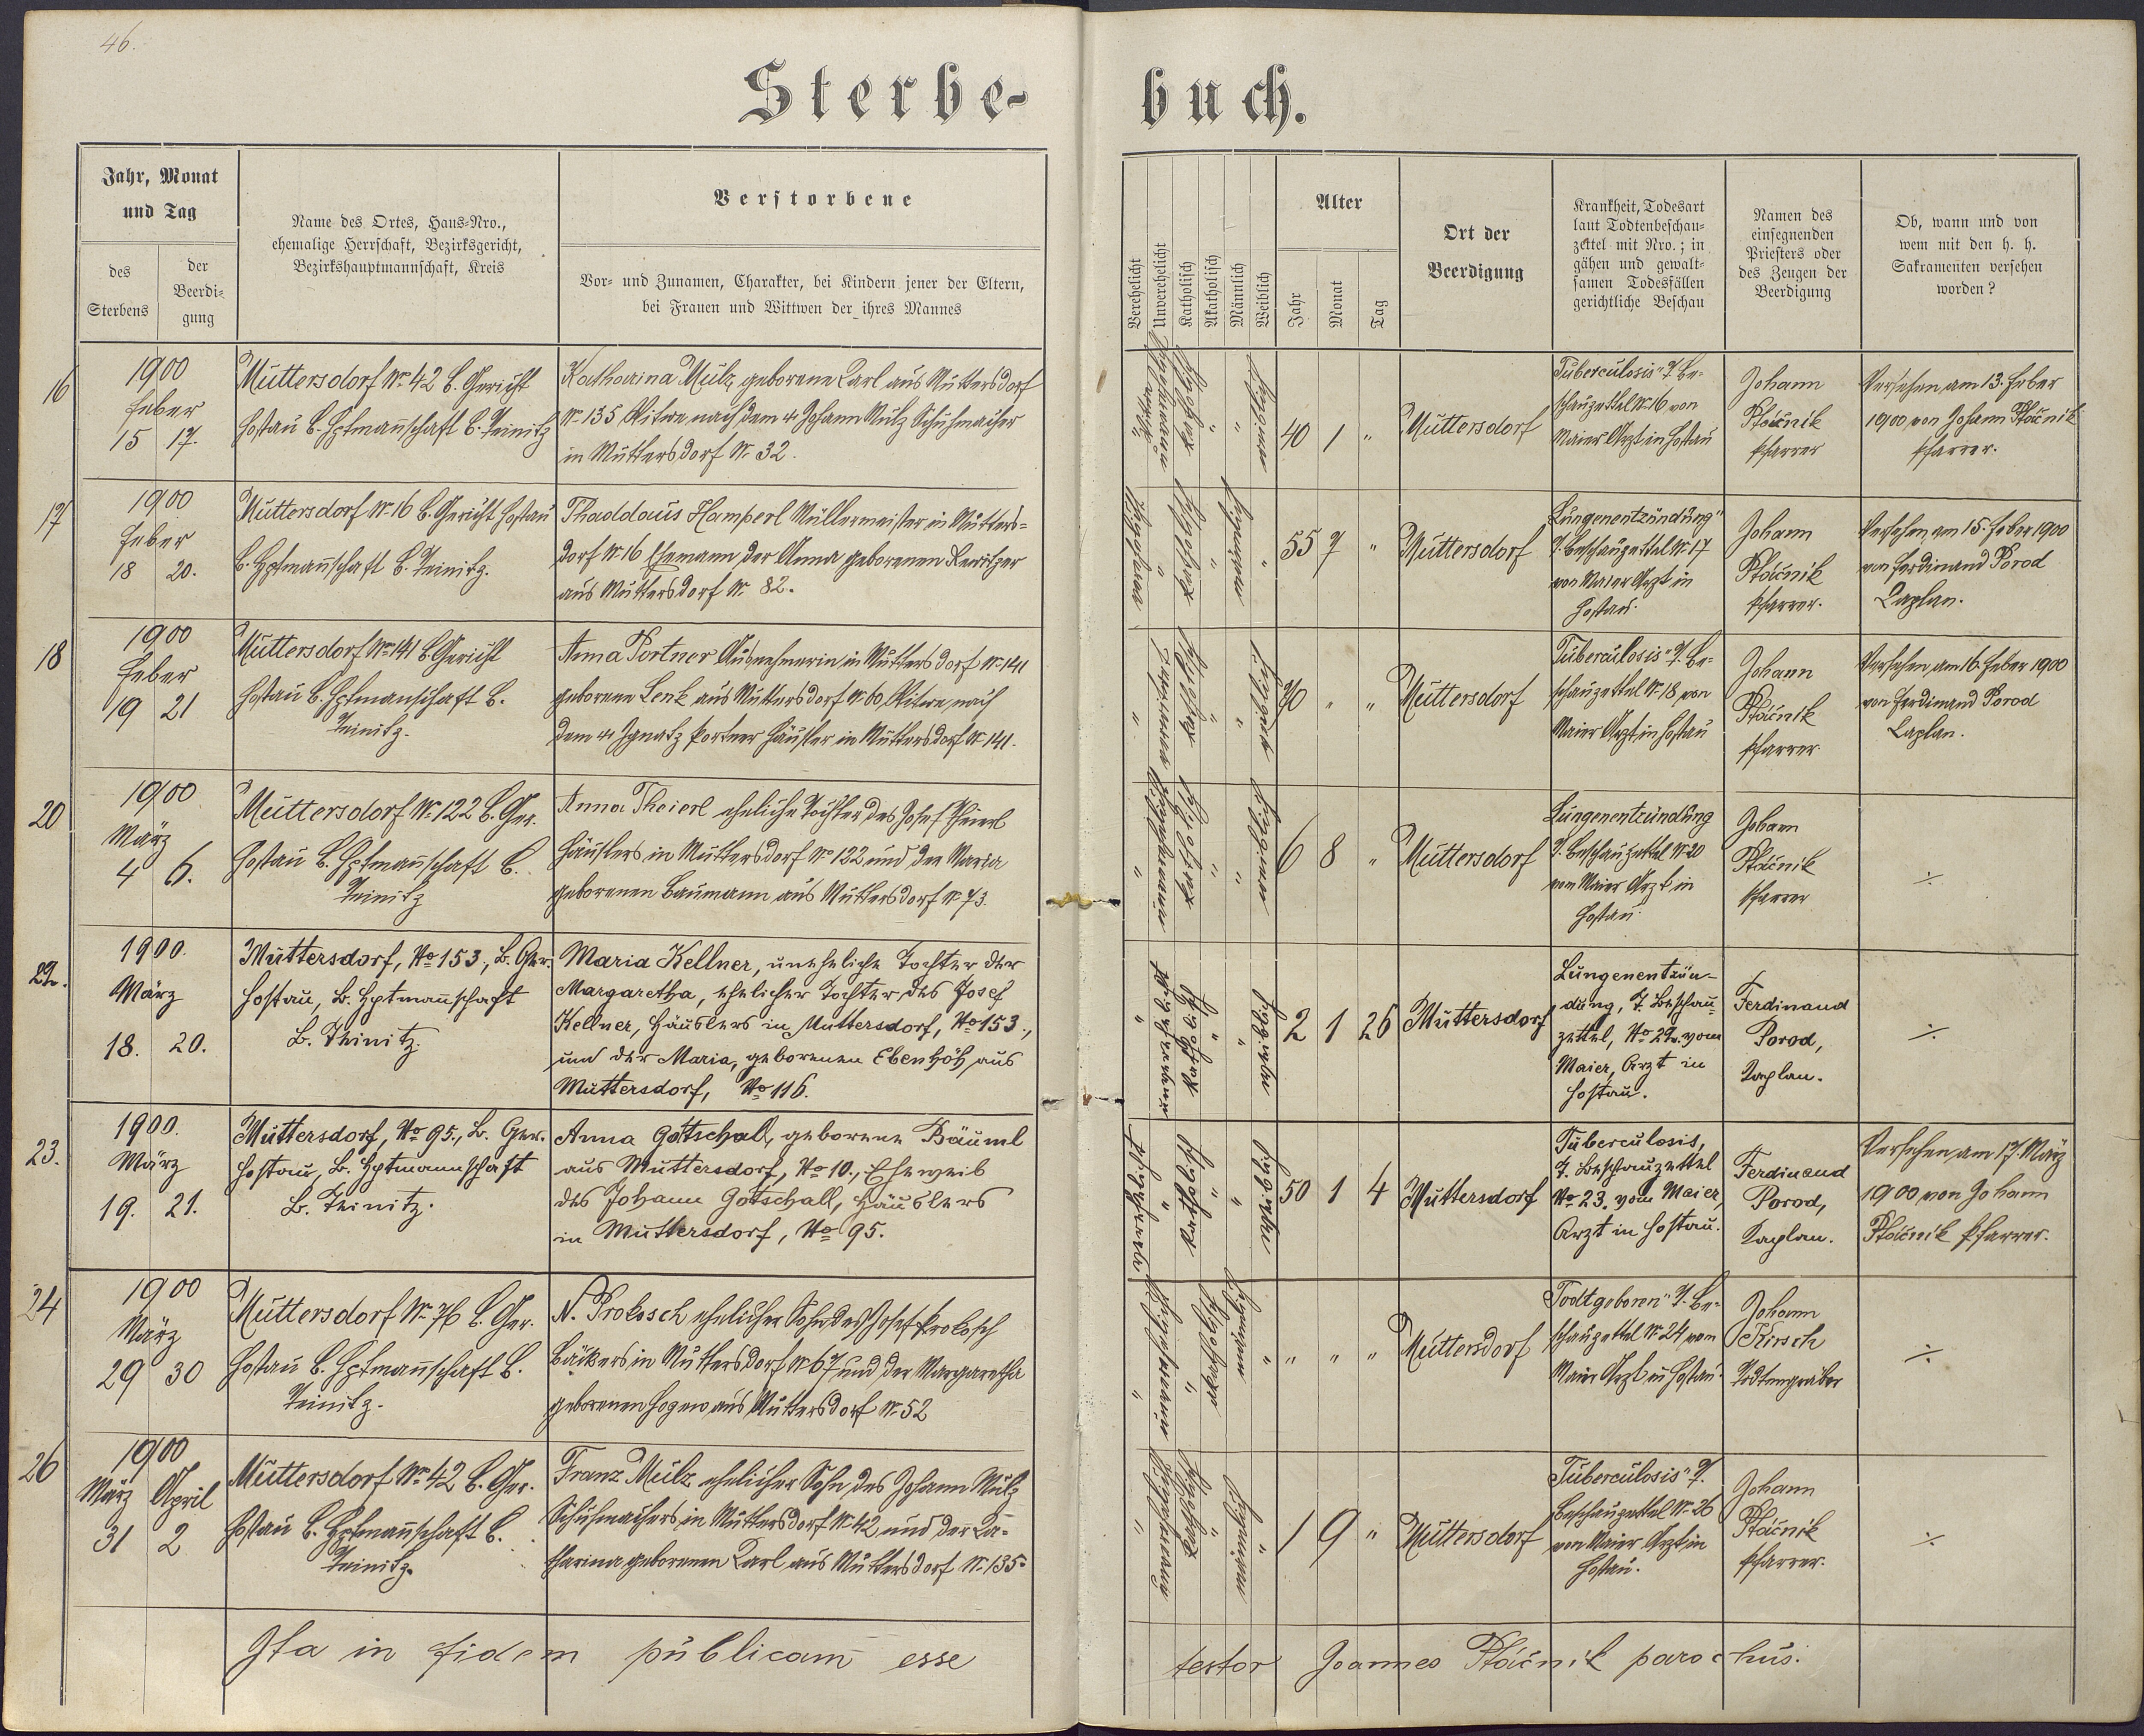 46.
Sterbe-
buch.
Jahr, Monat
und Tag
des
Sterbens
der
Beerdi-
gung
Name des Ortes, Haus-Nro.,
ehemalige Herrschaft, Bezirksgericht,
Bezirkshauptmannschaft, Kreis
Verstorbene
Vor- und Zunamen, Charakter, bei Kindern jener der Eltern,
bei Frauen und Wittwen der ihres Mannes
Verehelicht
Unverehelicht
Katholisch
Akatholisch
Männlich
Weiblich
Alter
Jahr
Monat
Tag
Ort der
Beerdigung
Krankheit, Todesart
laut Todtenbeschau-
zettel mit Nro.; in
gähen und gewalt-
samen Todesfällen
gerichtliche Beschau
Namen des
einsegnenden
Priesters oder
des Zeugen der
Beerdigung
Ob, wann und von
wem mit den h. h.
Sakramenten versehen
worden?
16
1900
Feber
15 17.
Muttersdorf No 42 B. Gericht
Hostau B. Hptmannschaft B. Teinitz
Katharina Mulz geborene Karl aus Muttersdorf
No 135 Witwe nach dem Johann Mulz Schuhmacher
in Muttersdorf No 32.
40 1 "
Muttersdorf
Tuberculosis" l. Be-
schauzettel No 16 von
Maier Arzt in Hostau
Johann
Ptáčník
Pfarrer
Versehen am 13. Feber
1900 von Johann Ptáčník
Pfarrer.
17
1900
Feber
18 20.
Muttersdorf No 16 B. Gericht Hostau
B. Hptmannschaft B. Teinitz.
Thaddäus Hamperl Müllermeister in Mutters=
dorf No 16 Ehemann der Anna geborenen Rewitzer
aus Muttersdorf No 82.
55 7 "
Muttersdorf
Lungenentzündung"
l. Beschauzettel No 17
von Maier Arzt in
Hostau.
Johann
Ptáčník
Pfarrer.
Versehen am 15. Feber 1900
von Ferdinand Porod
Kaplan.
18
1900
Feber
19 21
Muttersdorf No 141 B. Gericht
Hostau B. Hptmannschaft B.
Teinitz.
Anna Portner Ausnehmerin in Muttersdorf No 141
geborene Lenk aus Muttersdorf No 60, Witwe nach
dem Ignatz Portner Häusler in Muttersdorf No 141.
70 " "
Muttersdorf
Tuberculosis" l. Be-
schauzettel No 18 von
Maier Arzt in Hostau
Johann
Ptáčník
Pfarrer.
Versehen am 16. Feber 1900
von Ferdinand Porod
Kaplan.
20
1900
März
4 6.
Muttersdorf No 122 B. Ger.
Hostau B. Hptmannschaft B.
Teinitz
Anna Theierl eheliche Tochter des Josef Theierl
Häuslers in Muttersdorf No 122 und der Maria
geborenen Baumann aus Muttersdorf No 73.
6 8 "
Muttersdorf
Lungenentzündung
l. Beschauzettel No 20
von Maier Arzt in
Hostau.
Johann
Ptáčník
Pfarrer
÷
22.
1900.
März
18. 20.
Muttersdorf, No 153., B. Ger.
Hostau, B. Hptmannschaft
B. Teinitz.
Maria Kellner, uneheliche Tochter der
Margaretha, ehelicher Tochter des Josef
Kellner, Häuslers in Muttersdorf, No 153.,
und der Maria, geborenen Ebenhöh aus
Muttersdorf, No 116.
2 1 26
Muttersdorf
Lungenentzün-
dung, l. Beschau-
zettel, No 22. vom
Maier, Arzt in
Hostau.
Ferdinand
Porod,
Kaplan.
÷
23.
1900.
März
19. 21.
Muttersdorf, No 95., B. Ger.
Hostau, B. Hptmannschaft
B. Teinitz.
Anna Gotschall, geborene Bäuml
aus Muttersdorf, No 10., Eheweib
des Johann Gotschall, Häuslers
in Muttersdorf, No 95.
50 1 4
Muttersdorf
Tuberculosis,
l. Beschauzettel
No 23. vom Maier,
Arzt in Hostau.
Ferdinand
Porod,
Kaplan.
Versehen am 17. März
1900 von Johann
Ptáčník Pfarrer.
24
1900
März
29 30
Muttersdorf No 76 B. Ger.
Hostau B. Hptmannschaft B.
Teinitz.
N. Prokosch ehelicher Sohn des Josef Prokosch
Bäckers in Muttersdorf No 67 und der Margaretha
geborenen Hogen aus Muttersdorf No 52
" " "
Muttersdorf
Todtgeboren" l. Be-
schauzettel No 24 von
Maier Arzt in Hostau.
Johann
Kirsch
Todtengräber
÷
26
1900
März April
31 2
Muttersdorf No 42 B. Ger.
Hostau B. Hptmannschaft B.
Teinitz.
Franz Mulz ehelicher Sohn des Johann Mulz
Schuhmachers in Muttersdorf No 42 und der Ka-
tharina geborenen Karl aus Muttersdorf No 135.
1 9 "
Muttersdorf
Tuberculosis" l.
Beschauzettel No 26
von Maier Arzt in
Hostau.
Johann
Ptáčník
Pfarrer.
÷
Ita in fidem publicam esse
testor Joannes Ptáčník parochus.